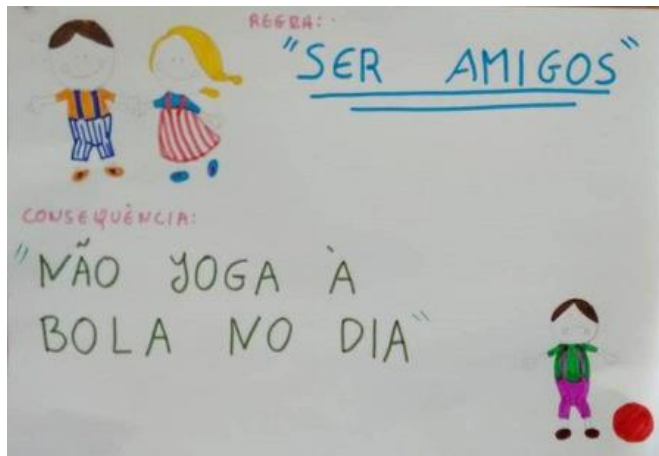 REGRA:
"SER AMIGOS"
CONSEQUÊNCIA:
"NÃO JOGA À
BOLA NO DIA"